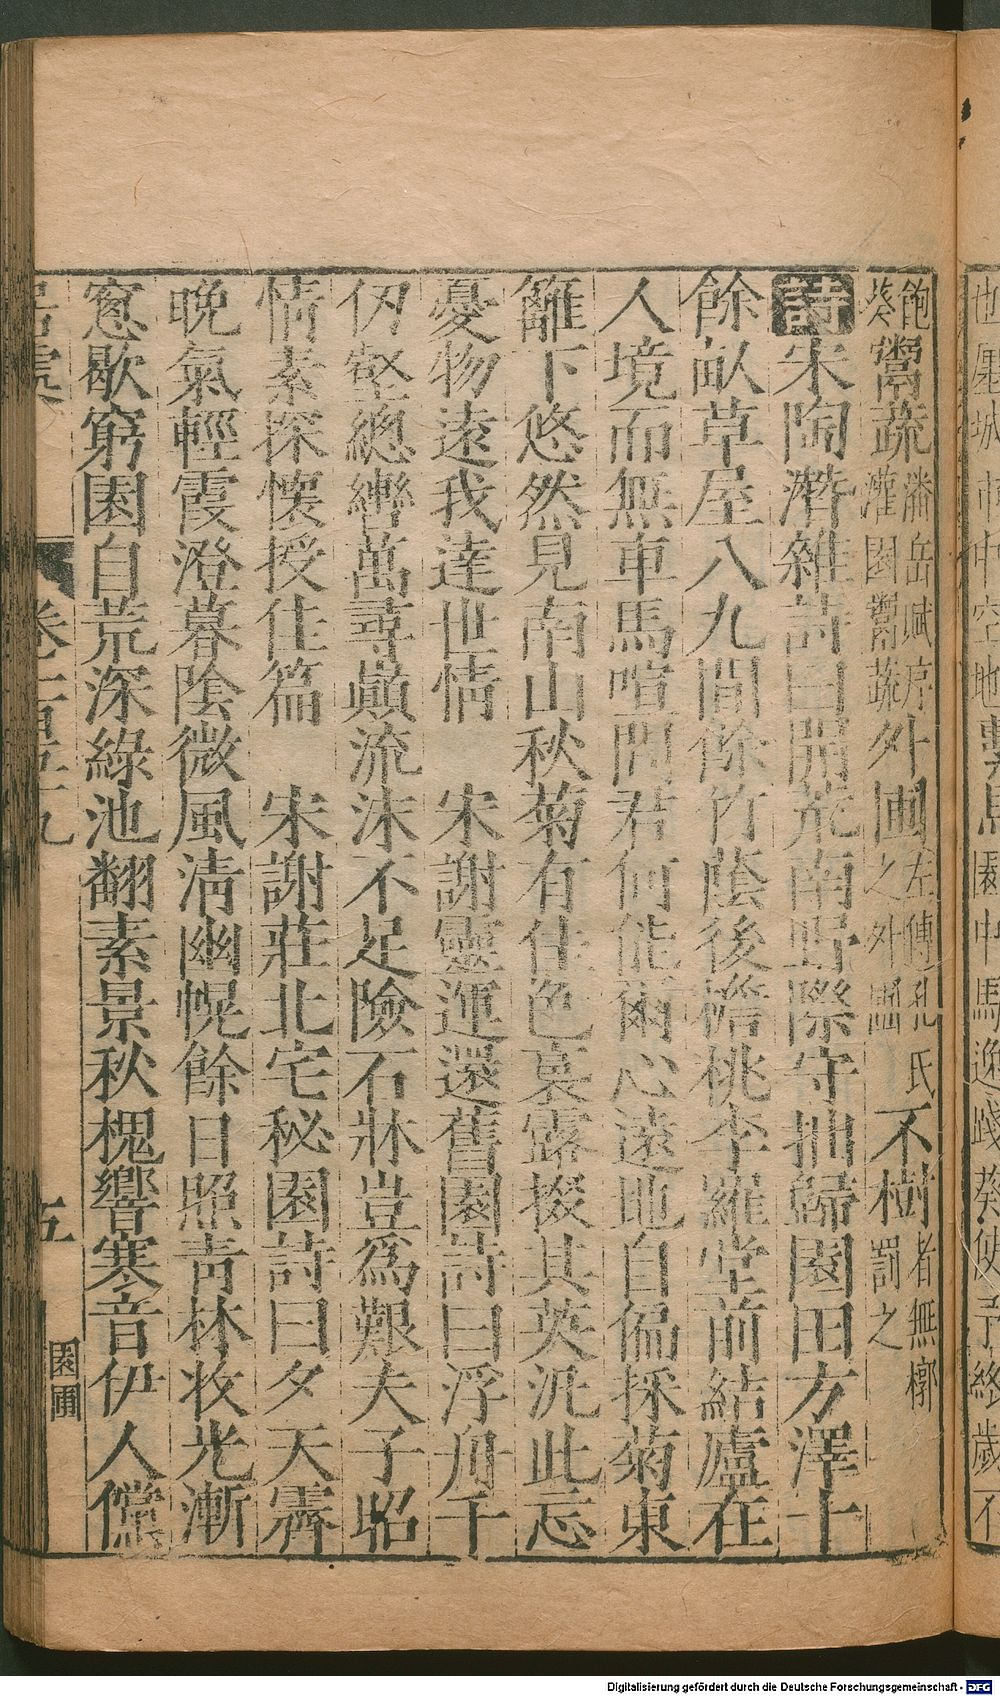 城市中空地繫馬園中馬逸踐葵使予終歲不
飽葵鬻蔬潘岳賦序灌園鬻蔬外圃左傳孔氏之外圃不樹者無槨罰之
詩宋陶潛雜詩曰開荒南野際守拙歸園田方澤十
餘畝草屋八九間餘竹蔭後檐桃李羅堂前結廬在
人境而無車馬喧問君何能爾心遠地自偏採菊東
籬下悠然見南山秋菊有佳色裛露掇其英汎此忘
憂物遠我達世情　宋謝靈運還舊園詩曰浮舟千
仭壑總轡萬尋巔流沫不足險石牀豈爲艱夫子昭
情素探懷授佳篇　宋謝莊北宅秘園詩曰夕天霽
晚氣輕霞澄暮陰微風清幽幌餘日照青林收光漸
窻歇窮園自荒深綠池翻素景秋槐響寒音伊人儻
居處　卷一百五十九　五　園圃
Digitalisierung gefördert durch die Deutsche Forschungsgemeinschaft - DFG